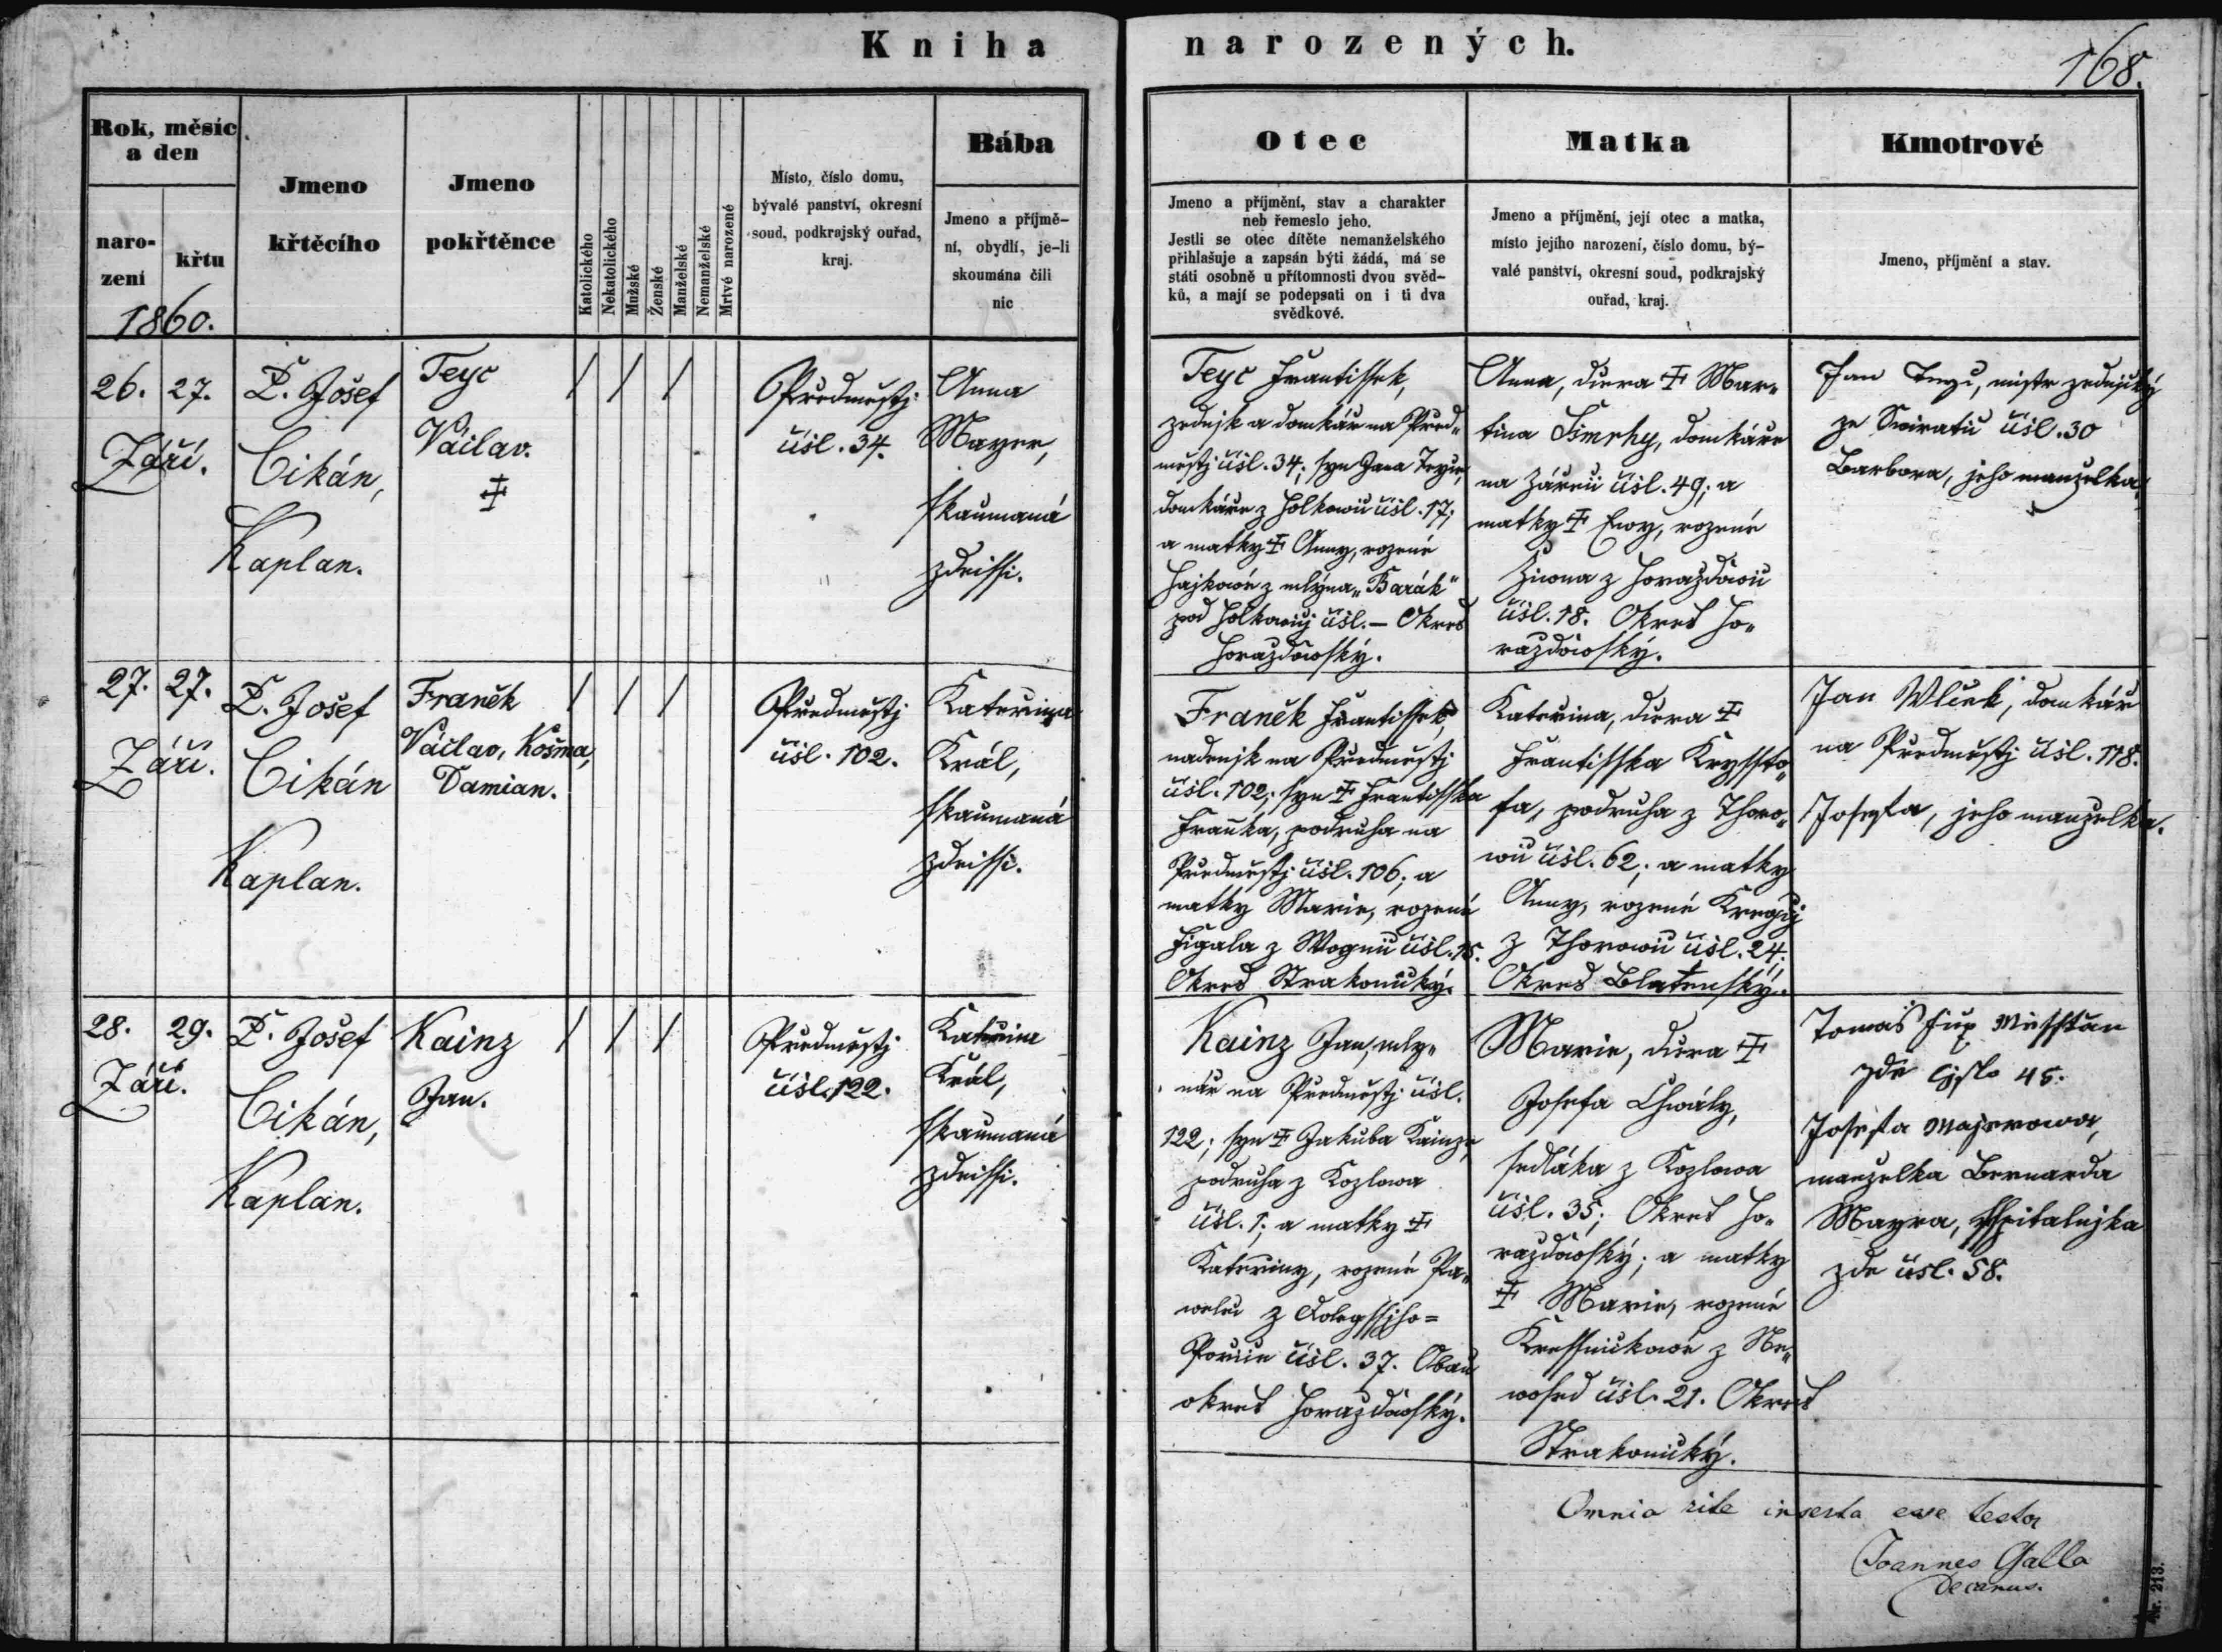 Kniha narozených.
168.
Rok, měsíc a den
naro-
zení
křtu
1860.
Jmeno
křtěcího
Jmeno
pokřtěnce
Katolického
Nekatolického
Mužské
Ženské
Manželské
Nemanželské
Mrtvé narozené
Místo, číslo domu,
bývalé panství, okresní
soud, podkrajský ouřad,
kraj.
Bába
Jmeno a příjmě-
ní, obydlí, je-li
skoumána čili
nic
Otec
Jmeno a příjmění, stav a charakter
neb řemeslo jeho.
Jestli se otec dítěte nemanželského
přihlašuje a zapsán býti žádá, má se
státi osobně u přítomnosti dvou svěd-
ků, a mají se podepsati on i ti dva
svědkové.
Matka
Jmeno a příjmění, její otec a matka,
místo jejího narození, číslo domu, bý-
valé panství, okresní soud, podkrajský
ouřad, kraj.
Kmotrové
Jmeno, příjmění a stav.
26. 27.
Září.
P. Josef
Cikán,
Kaplan.
Teyc
Václav.
‡
/ / /
Předměstj
čisl. 34.
Anna
Mayer,
skaumaná
zdeissi.
Teyc Frantissek,
zednjk a domkář na Před„
městj čisl. 34; syn Jana Teyce,
domkáře z Holkowic čisl. 17;
a matky ‡ Anny, rozené
Hajkowé z mlýna „Barák"
pod Holkowicj čisl. — Okres
Horazdowský.
Anna, dcera ‡ Mar„
tina Simehy, domkáře
na Zářeči čisl. 49; a
matky ‡ Ewy, rozené
z Horazdowic
čisl. 18. Okres Ho„
razdowský.
Jan Teyc, mistr zednický
ze Swiratic čisl. 30
Barbora, jeho manzelka.
27. 27.
Září.
P. Josef
Cikán
Kaplan.
Franěk
Václav, Košma,
Damian.
/ / /
Předměstj
čisl. 102.
Kateřina
Král,
skaumaná
zdeissi.
Franěk Frantissek,
nadenjk na Předměstj
čisl. 102; syn ‡ Frantisska
Fraňka, podruha na
Předměstj čisl. 106; a
matky Marie, rozené
Figala z Wognic čisl. 15.
Okres Strakonický.
Kateřina, dcera ‡
Frantisska Kryssto„
fa, podruha z Thoro„
wic čisl. 62; a matky
Anny, rozené Kregčj
z Thorowic čisl. 24.
Okres Blatenský.
Jan Wlček, domkář
na Předměstj čisl. 118.
Josefa, jeho manzelka.
28. 29.
Září.
P. Josef
Cikán,
Kaplan.
Kainz
Jan.
/ / /
Předměstj
čisl. 122.
Kateřina
Král,
skaumaná
zdeissi.
Kainz Jan, mly„
nář na Předměstj čisl.
122; syn ‡ Jakuba Kainze,
podruha z Kozlowa
čisl. 1; a matky ‡
Kateřiny, rozené Pa„
welec z Dolegssjho=
Pořiče čisl. 37. Obau
okres Horazdowský.
Marie, dcera ‡
Josefa Chwály,
sedláka z Kozlowa
čisl. 35; Okres Ho„
razdowský; a matky
‡ Marie, rozené
Kressničkowé z Ne„
wosed čisl. 21. Okres
Strakonický.
Tomaš Měssťan
zde čjslo 45.
Josefa Majerowa,
manzelka Bernarda
Mayra, sspitalnjka
zde čisl. 58.
Omnia rite inserta esse testor
Joannes Galla
Decanus.
Nr. 213.